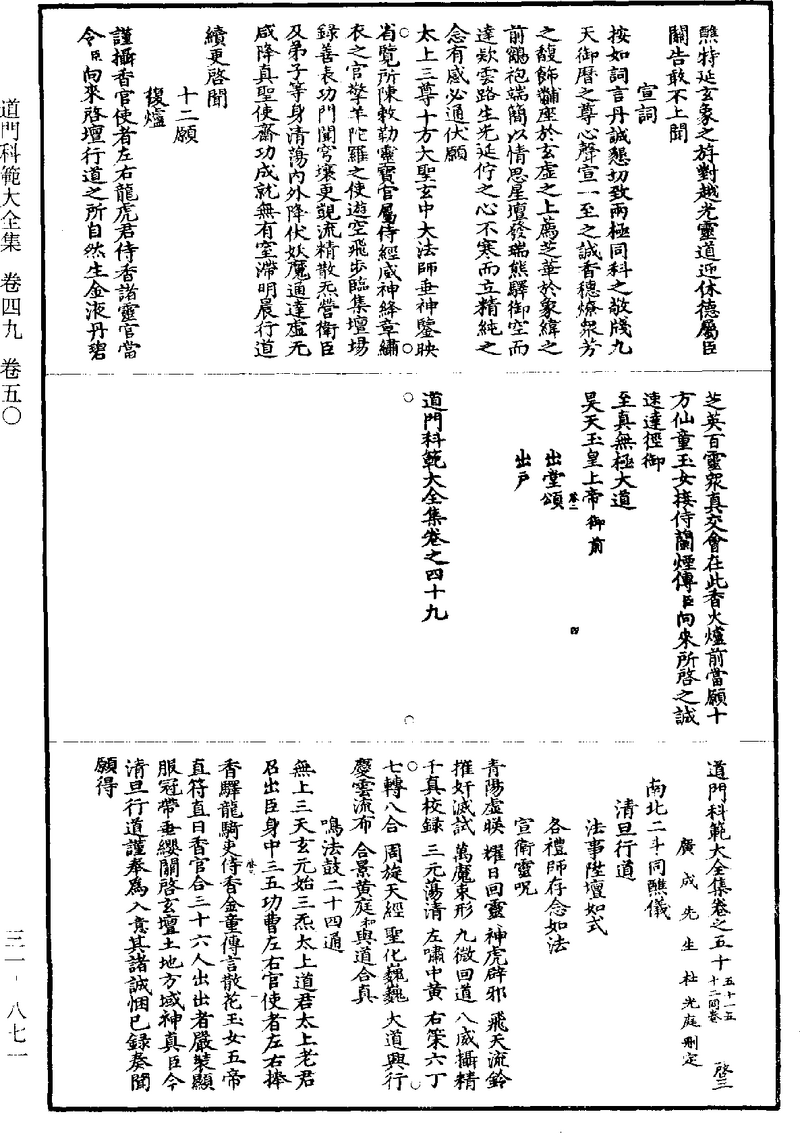 醮特延玄象之斿對越光靈道迎休德屬臣
關告敢不上聞
宣詞
按如詞言丹誠懇切致兩極同科之敬牋九
天御曆之尊心聲宣一至之誠香穗燎衆芳
之馥飾黼座於玄虛之上薦芝華於象緯之
前鶴袍端簡以情思星壇發瑞熊驛御空而
達欵雲路生光延佇之心不寒而立精純之
念有感必通伏願
太上三尊十方大聖玄中大法師垂神鑒映
省覽所陳敕勒靈寶官屬侍經威神絳章繡
衣之官擎羊陀羅之使遊空飛步臨集壇場
錄善表功門闥穹壤更覬流精散炁營衛臣
及弟子等身清蕩內外降伏妖魔通達虛无
咸降真聖使齋功成就無有窒滯明晨行道
續更啓聞
十二願
復爐
謹攝香官使者左右龍虎君侍香諸靈官當
令臣向來啓壇行道之所自然生金液丹碧
芝英百靈衆真交會在此香火爐前當願十
方仙童玉女接侍蘭煙傳臣向來所啓之誠
速達徑御
至真無極大道
昊天玉皇上帝御前
出堂頌
出戶
四
道門科範大全集卷之四十九
道門科範大全集卷之五十 五十一五十二同卷 啓三
廣成先生杜光庭刪定
南北二斗同醮儀
清旦行道
法事陞壇如式
各禮師存念如法
宣衛靈呪
青陽虛映 耀日回靈 神虎辟邪 飛天流鈴
摧奸滅試 萬魔束形 九微回道 八威攝精
千真校錄 三元蕩清 左嘯中黃 右策六丁
七轉八合 周旋天經 聖化巍巍 大道興行
慶雲流布 合景黃庭 和與道合真
鳴法鼓二十四通
無上三天玄元始三炁太上道君太上老君
召出臣身中三五功曹左右官使者左右捧
香驛龍騎吏侍香金童傳言散花玉女五帝
直符直日香官合三十六人出出者嚴裝顯
服冠帶垂纓關啓玄壇土地方域神真臣今
清旦行道謹奉爲入意其諸誠悃已錄奏聞
願得
道門科範大全集 卷四九 卷五〇
三一-八七一